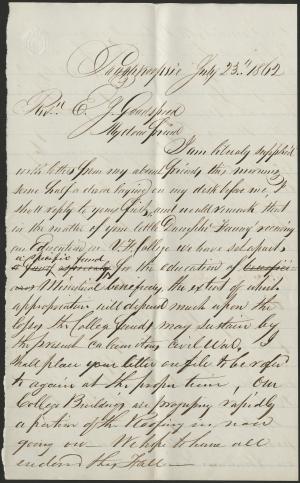 Poughkeepsie July 23rd 1862
Revd. E. J. Goodspeed
My dear friend
I am literaly supplied
with letters from my about friends this morning
some half a dozen laying on my desk before me, I
shall reply to your first, and would remark that
in the matter of your little Daughter Fanny receiving
an Education in V. F. College we have set apart
a specific fund
for the education of
Ministerial beneficiary, the extent of which
appropriation will depend much upon the
loss, the College funds may sustain by
the present calamitous Civil War, I
shall place your letter on file to be referd
to again at the proper time, Our
College Buildings are progressing rapidly
a portion of the Roofing is now
going on — We hope to have all
enclosed this Fall —